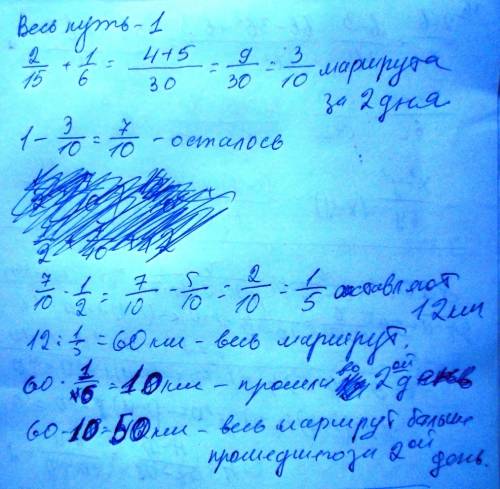 Весь путь - 1
2/15 + 1/6 = 4+5/30 = 9/30 = 3/10 маршрута
за 2 дня
1 - 3/10 = 7/10 - осталось
7/10 - 1/2 = 7/10 - 5/10 = 2/10 = 1/5 составляют
12 км
12 : 1/5 = 60 км - весь маршрут.
60 · 1/6 = 10 км - прошли во 2ой день
60 - 10 = 50 км - весь маршрут больше
прошедшего за 2ой день.